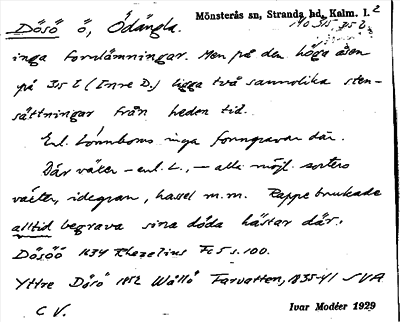 Mönsterås sn, Stranda hd, Kalm. l. 2
Dösö ö, Ödängla.
inga fornlämningar. Men på den höga åsen
på 352 (Inre D.) ligga två sannolika sten-
sättningar från heden tid.
Enl. Lönnboms inga forngravar där.
Där växer – enl. L., – alla möjl. sorters
växter, idegran, hassel m.m. Rappe brukade
alltid begrava sina döda hästar där.
Dösöö 1634 Rhezelius Fc5 s. 100.
Yttre Dösö 1852 Wällö Farvatten, 1835-41 SVA
C V.
Ivar Modéer 1929